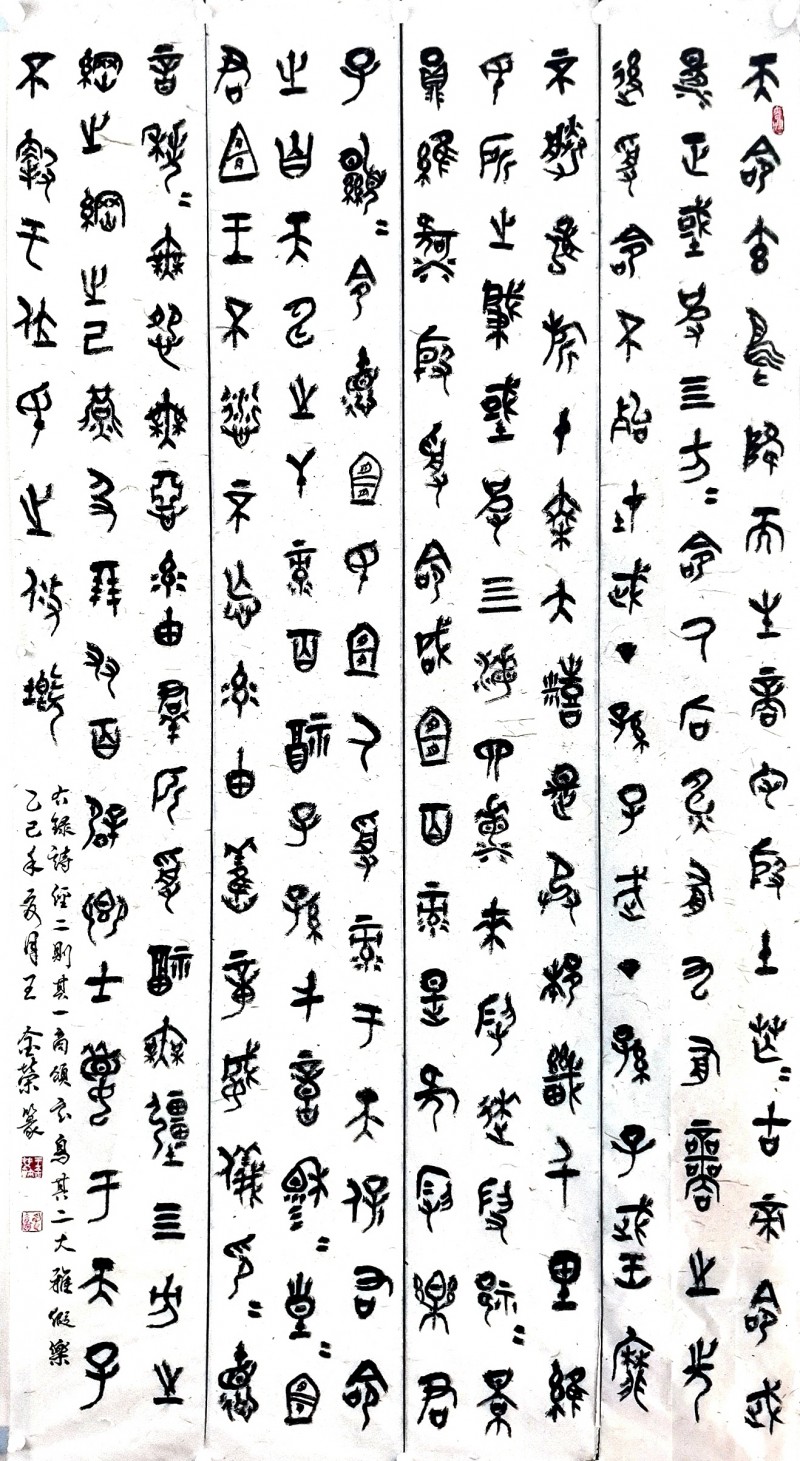 天命玄鳥降而生商宅殷土芒=古帝命武
湯正域彼四方=命厥后奄有九有商之先
后受命不殆在武丁孫子武丁孫子武王靡
不勝龍旂十乘大糦是承邦畿千里維
民所止肇域彼四海四海來假來假祁=景
員維河殷受命咸宜百祿是何假樂君
子顯=令德宜民宜人受祿于天保右命
之自天申之干祿百福子孫千億穆=皇=宜
君宜王不愆不忘率由舊章威儀抑=德
音秩=無怨無惡率由群匹受福無疆四方之
綱之綱之紀燕及朋友百辟卿士媚于天子
不解于位民之攸塈
右錄詩經二則其一商頌玄鳥其二大雅假樂
乙巳年夏月王金榮篆